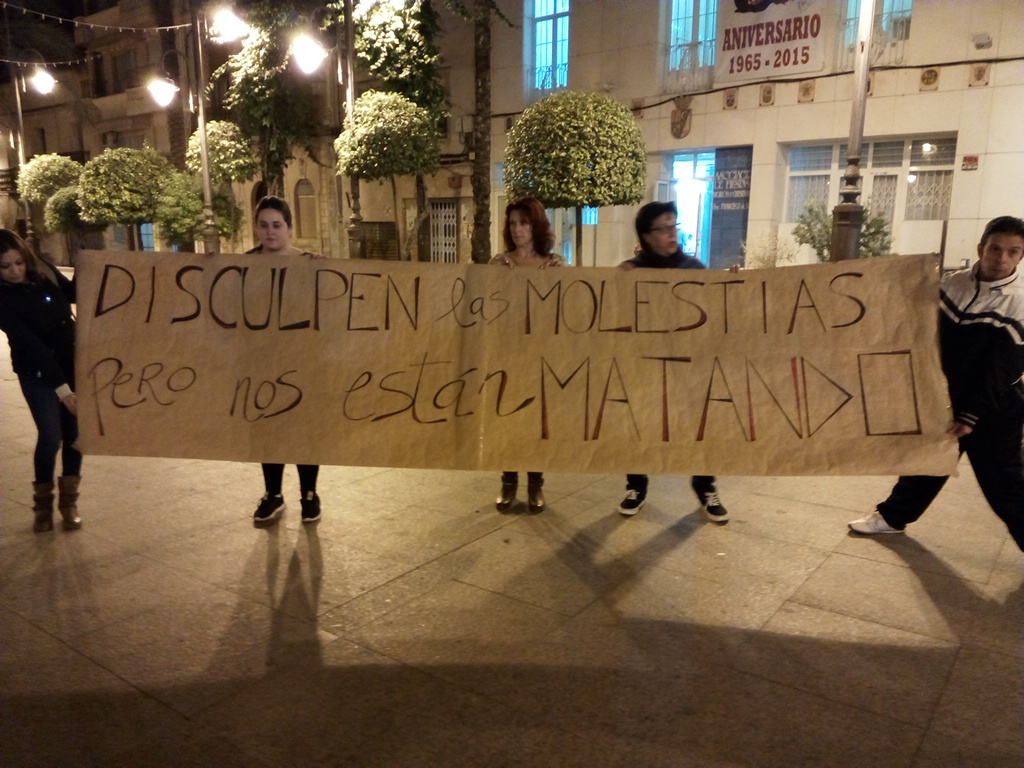 ANIVERSARIO
1965 - 2015
DISCULPEN las MOLESTIAS
pero nos están MATANDO